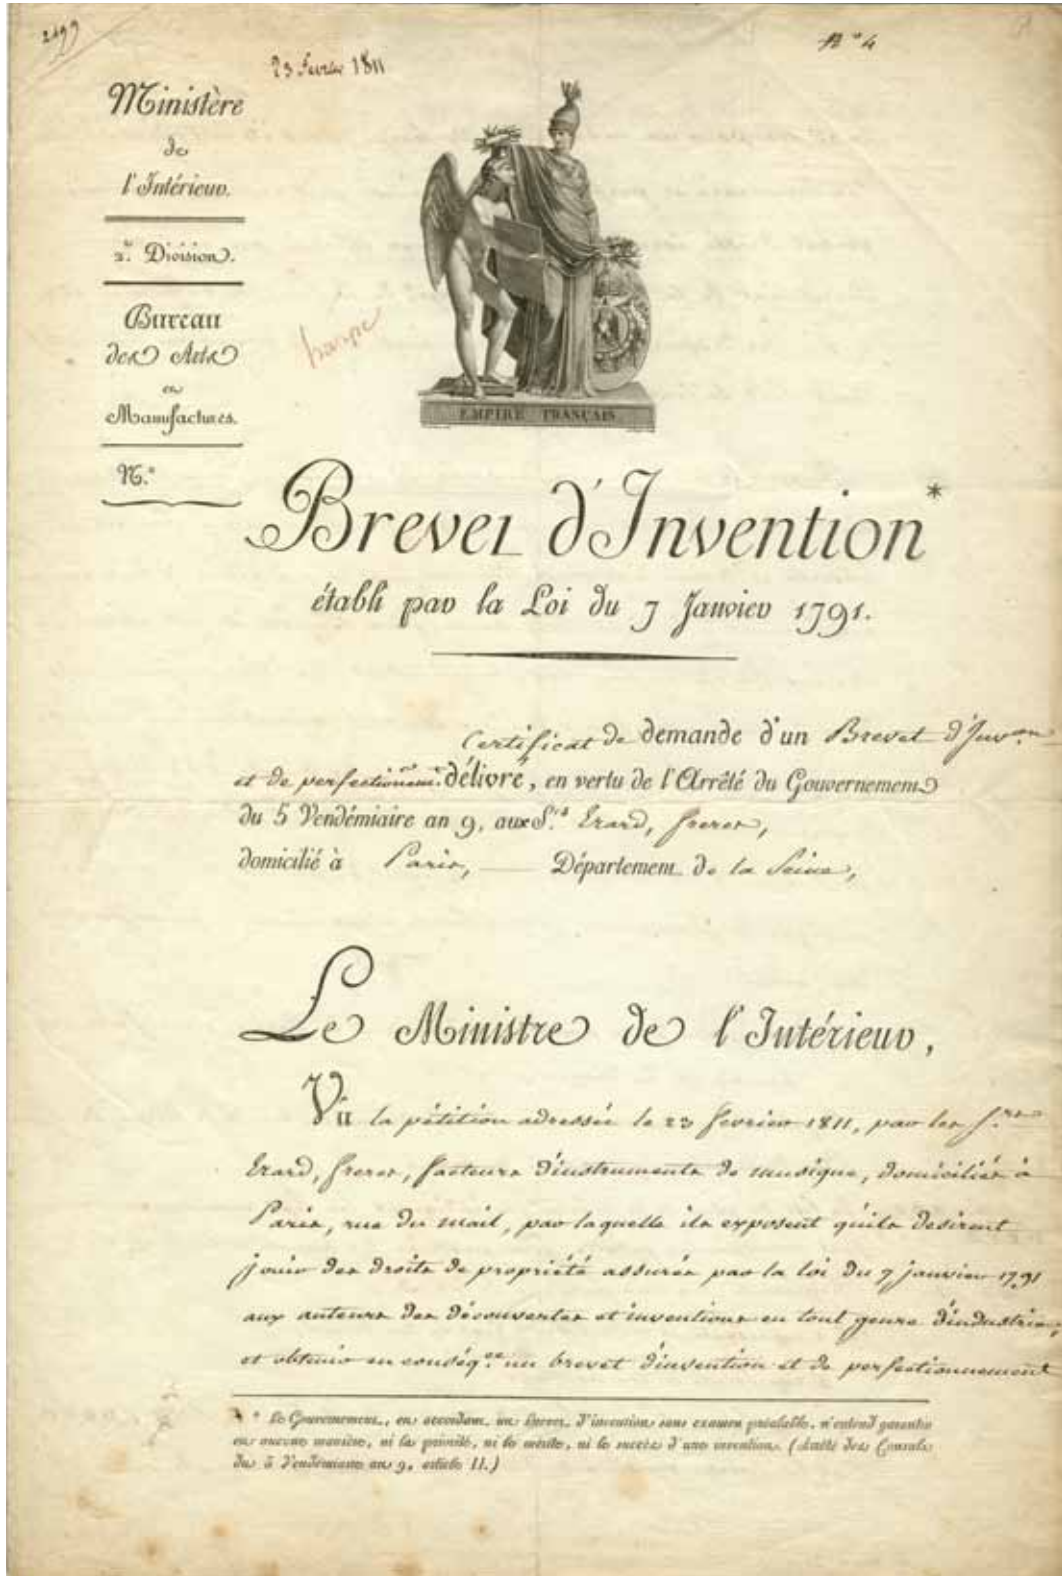 2499
N° 4
23 Fevrier 1811
Ministère
de
l'Intérieur.
2.e Division.
Bureau
des Arts
et
Manufactures.
N.°
harpe
EMPIRE FRANÇAIS
Brevet d'Invention*
établi par la Loi du 7 Janvier 1791.
Certificat de demande d'un Brevet d'Inv.on
et de perfectionnem.t délivré, en vertu de l'Arrêté du Gouvernement
du 5 Vendémiaire an 9, aux S.rs Erard, freres,
domicilié à Paris, Département de la Seine,
Le Ministre de l'Intérieur,
Vu la pétition adressée le 23 fevrier 1811, par les S.rs
Erard, freres, facteurs d'instruments de musique, domiciliés à
Paris, rue du mail, par laquelle ils exposent qu'ils desirent
jouir des droits de propriété assurés par la loi du 7 janvier 1791
aux auteurs des découvertes et inventions en tout genre d'industrie,
et obtenir en conséq.ce un brevet d'invention et de perfectionnement
* Le Gouvernement, en accordant un Brevet d'invention sans examen préalable, n'entend garantir
en aucune manière, ni la priorité, ni le mérite, ni le succès d'une invention. (Arrêté des Consuls
du 5 Vendémiaire an 9, article II.)